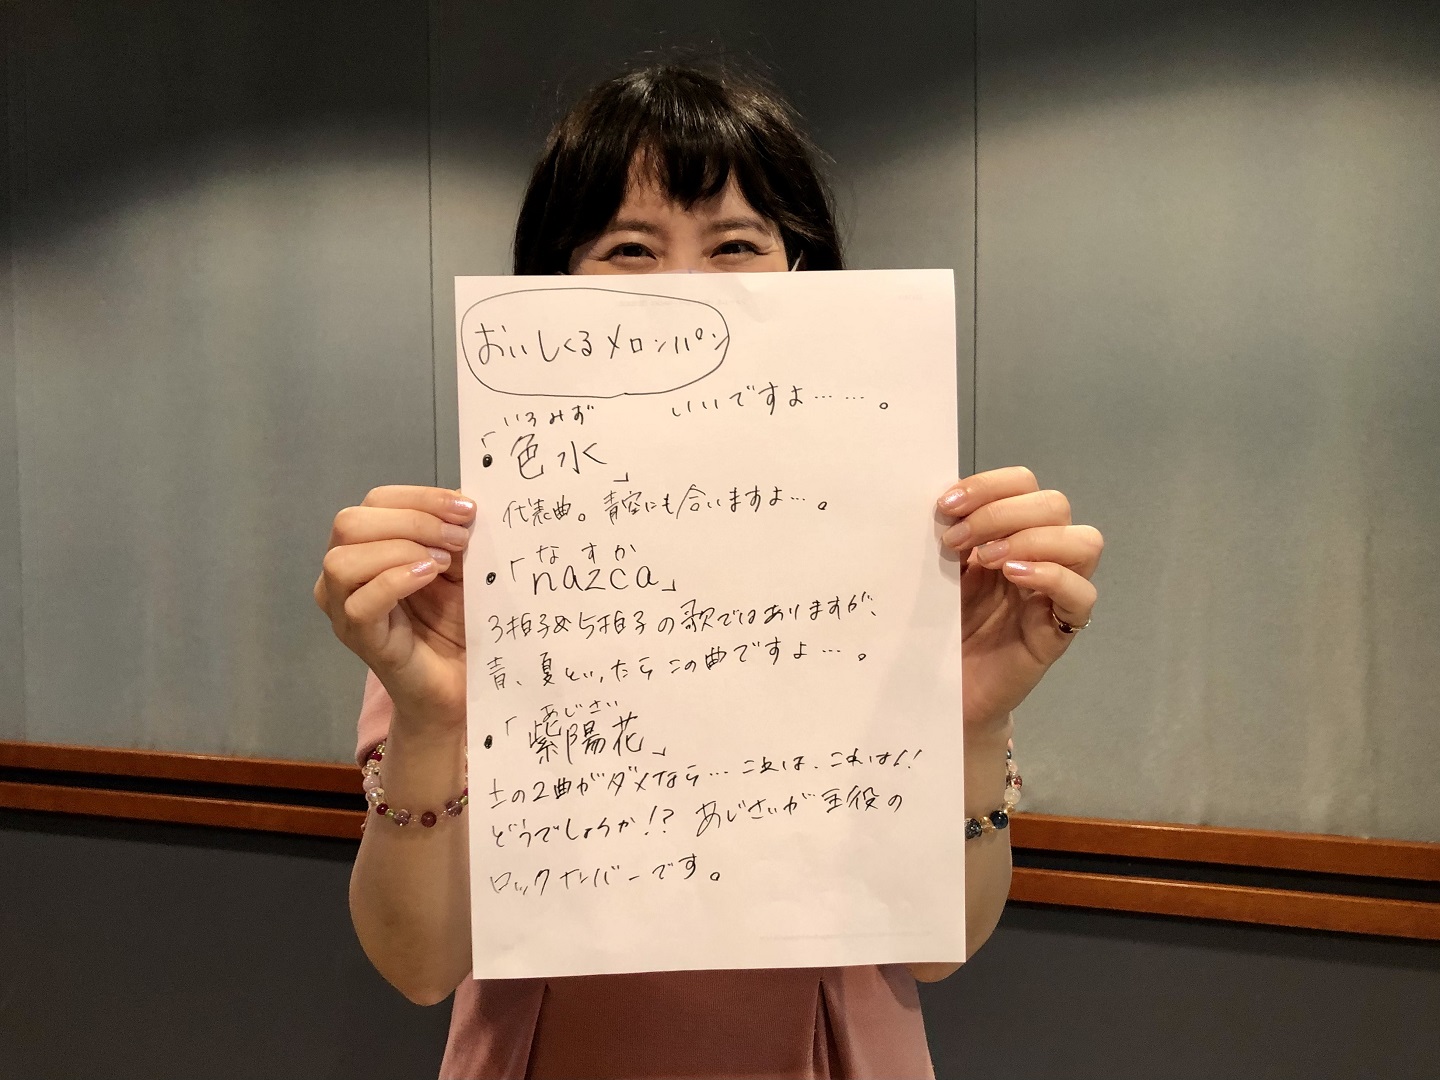 おいしくるメロンパン
いいですよ……。
いろみず
・「色水」
代表曲。青空にも合いますよ…。
なすか
・「nazca」
3拍子&5拍子の歌ではありますが、
青、夏といったらこの曲ですよ…。
あじさい
・「紫陽花」
上の2曲がダメなら…これは、これは!!
どうでしょうか!? あじさいが主役の
ロックナンバーです。